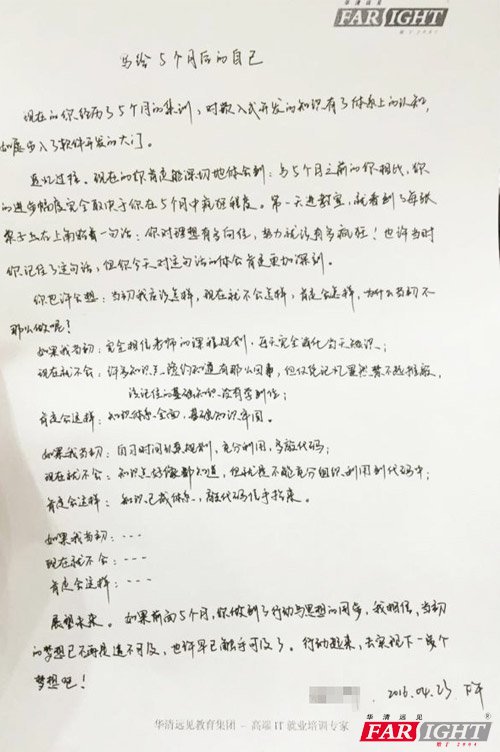 华清远见
FARSIGHT
始于2004
写给5个月后的自己
现在的你经历了5个月的集训，对嵌入式开发的知识有了体系上的认知，
如愿步入了软件开发的大门。
追忆过往，现在的你肯定能深切地体会到：与5个月之前的你相比，你
的进步幅度完全取决于你在5个月中疯狂程度。第一天进教室，就看到了每张
桌子上在上面贴着一句话：你对理想有多向往，努力就该有多疯狂！也许当时
你记住了这句话，但你今天对这句话的体会肯定更加深刻。
你也许会想：当初我应该怎样，现在就不会怎样，肯定会怎样，为什么当初不
那么做呢？
如果我当初：完全相信老师的课程规划，每天完全消化当天知识；
现在就不会：许多知识点隐约知道有那么回事，但仅凭记忆果然禁不起推敲，
没记住的基础知识没有学到位；
肯定会这样：知识体系全面，基础知识牢固。
如果我当初：自习时间认真规划，充分利用，多敲代码；
现在就不会：知识点好像都知道，但就是不能充分组织利用到代码中；
肯定会这样：知识已成体系，敲代码信手拈来。
如果我当初：---
现在就不会：---
肯定会这样：---
展望未来。如果前面5个月，你做到了行动与思想的同步，我相信，当初
的梦想已不再遥不可及，也许早已触手可及了。行动起来，去实现下一个
梦想吧！
2016.04.25 下午
华清远见教育集团 - 高端IT就业培训专家
华清远见
FARSIGHT
始于2004